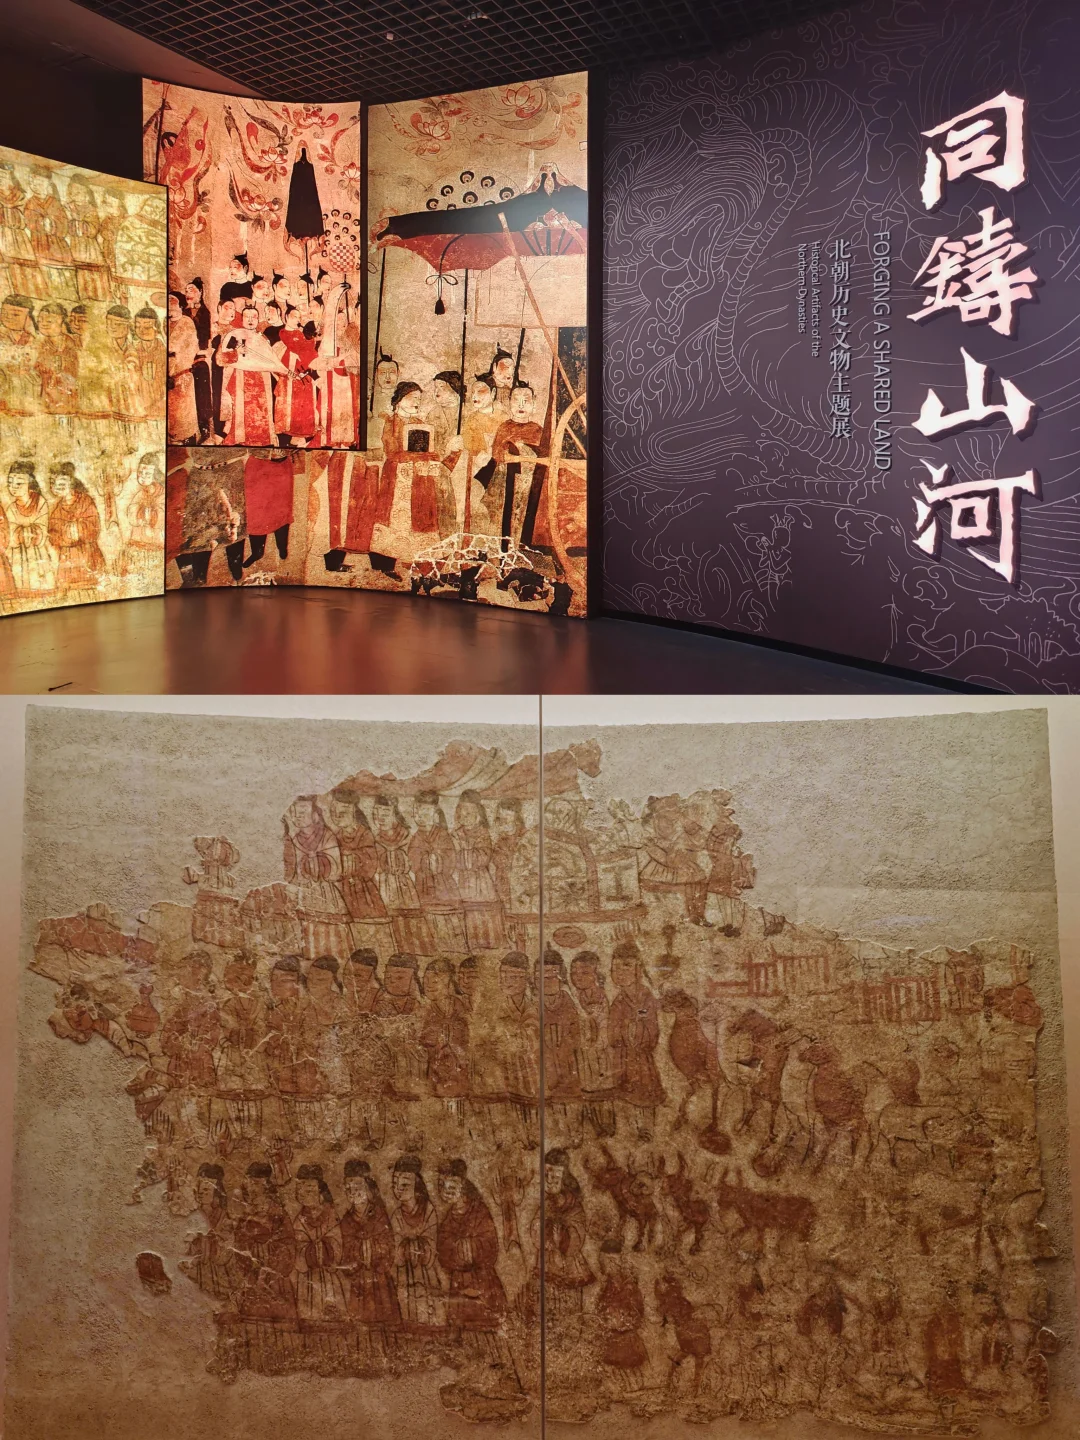 同鑄山河
FORGING A SHARED LAND
北朝历史文物主题展
Historical Artifacts of the
Northern Dynasties